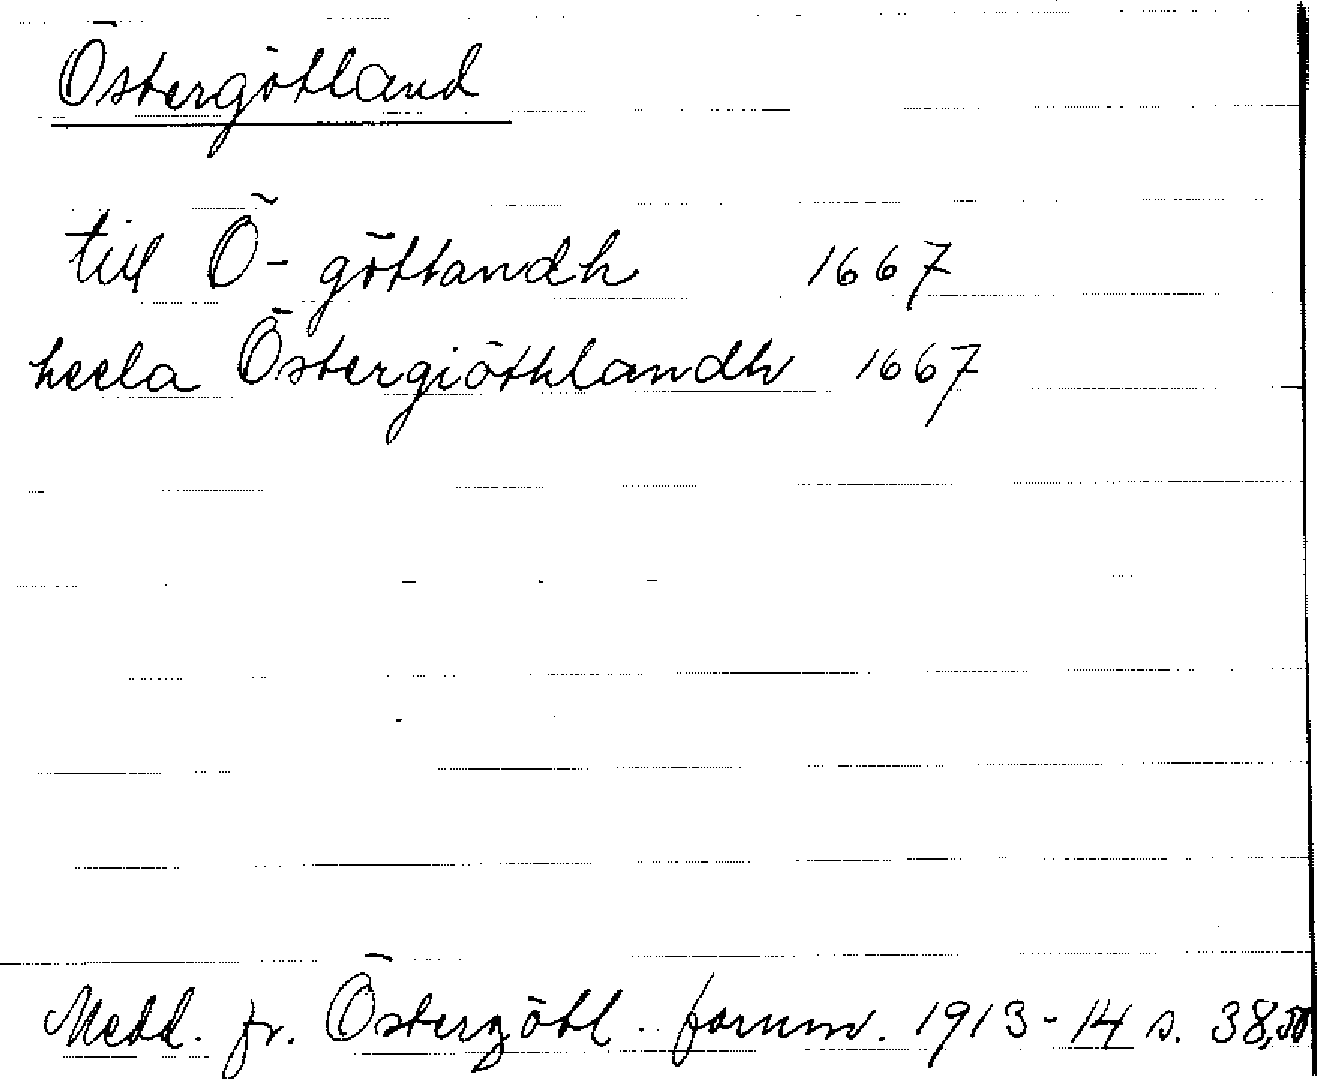 Östergötland
till Ö- göttandh 1667
heela Östergiöthlandh 1667
Medd. fr. Östergötl. fornm. 1913-14 s. 38,50